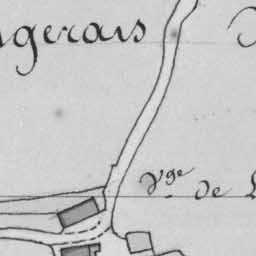 ngerais
Vge de L